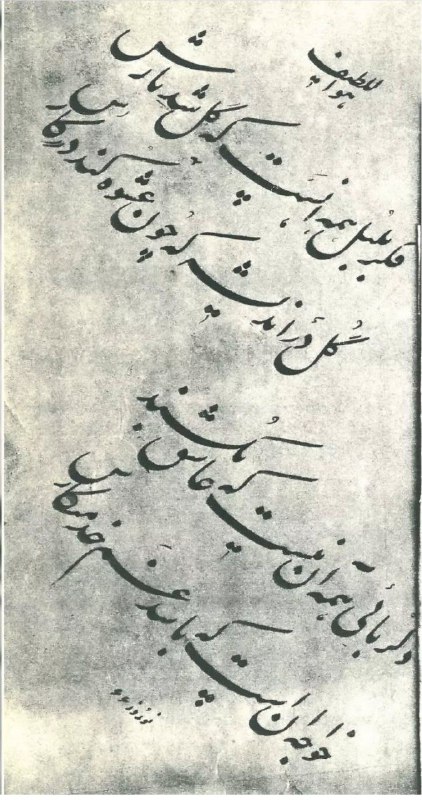 هو اللطیف
فکر بلبل همه آنست که گل شد یارش
گل در اندیشه که چون عشوه کند در کارش
دلربائی همه آن نیست که عاشق بکشند
خواجه آن است که باشد غم خدمتکارش
نوروز